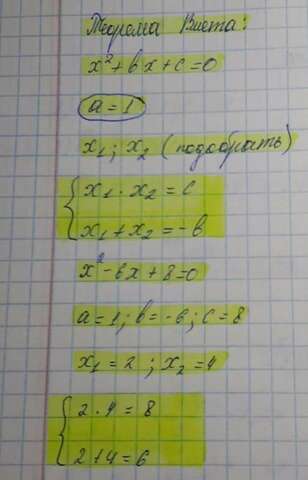 Теорема Виета:
x² + bx + c = 0
a = 1
x₁; x₂ (подобрать)
x₁ · x₂ = c
x₁ + x₂ = -b
x² - 6x + 8 = 0
a = 1; b = -6; c = 8
x₁ = 2; x₂ = 4
2 · 4 = 8
2 + 4 = 6